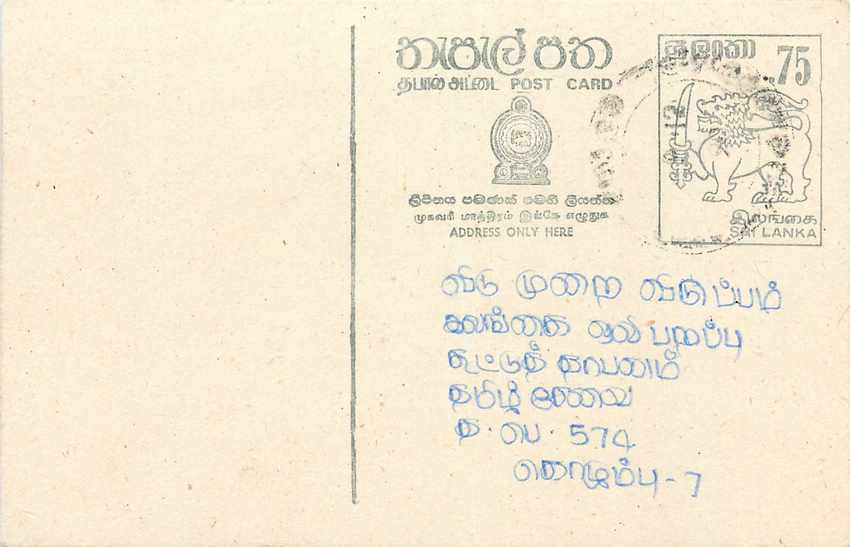 තැපැල් පත
தபால் அட்டை POST CARD
ලිපිනය පමණක් මෙහි ලියන්න
முகவரி மாத்திரம் இங்கே எழுதுக
ADDRESS ONLY HERE
ශ්‍රී ලංකා
.75
இலங்கை
SRI LANKA
விடு முறை விடுப்பம்
இலங்கை ஒலி பறப்பு
கூட்டுத் தாபனம்
தமிழ் சேவை
த. பெ. 574
கொழும்பு - 7